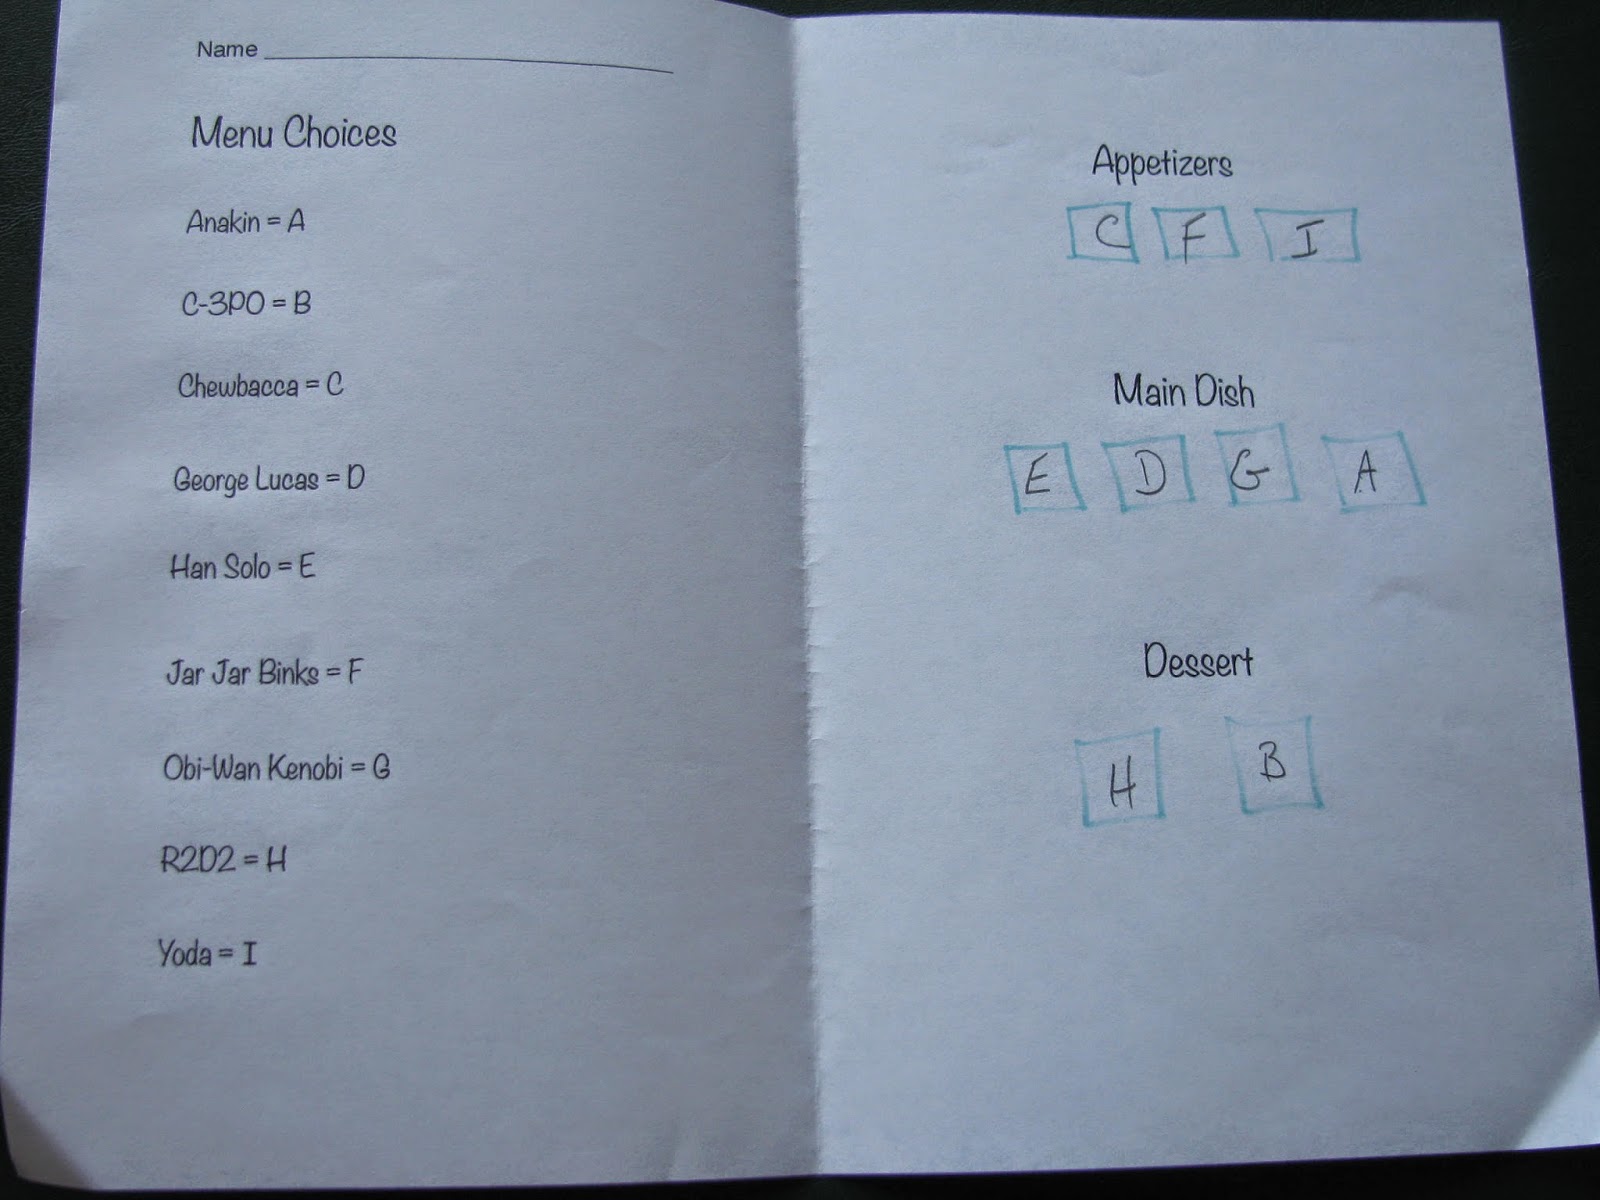 Name
Menu Choices
Anakin = A
C-3PO = B
Chewbacca = C
George Lucas = D
Han Solo = E
Jar Jar Binks = F
Obi-Wan Kenobi = G
R2D2 = H
Yoda = I
Appetizers
C F I
Main Dish
E D G A
Dessert
H B